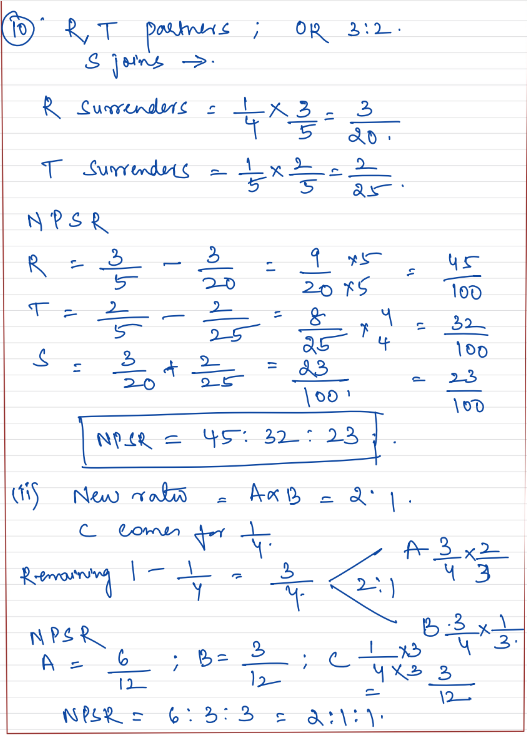 (10) R, T partners ; OR 3:2.
S joins →.
R Surrenders = 1/4 × 3/5 = 3/20.
T Surrenders = 1/5 × 2/5 = 2/25.
NPSR
R = 3/5 - 3/20 = 9/20 ×5/×5 = 45/100
T = 2/5 - 2/25 = 8/25 × 4/4 = 32/100
S = 3/20 + 2/25 = 23/100. = 23/100
NPSR = 45 : 32 : 23.
(ii) New ratio = A & B = 2:1.
C comes for 1/4.
Remaining 1 - 1/4 = 3/4. 2:1
A 3/4 × 2/3
B. 3/4 × 1/3.
NPSR
A = 6/12 ; B = 3/12 ; C 1/4 ×3/×3 = 3/12
NPSR = 6:3:3 = 2:1:1.